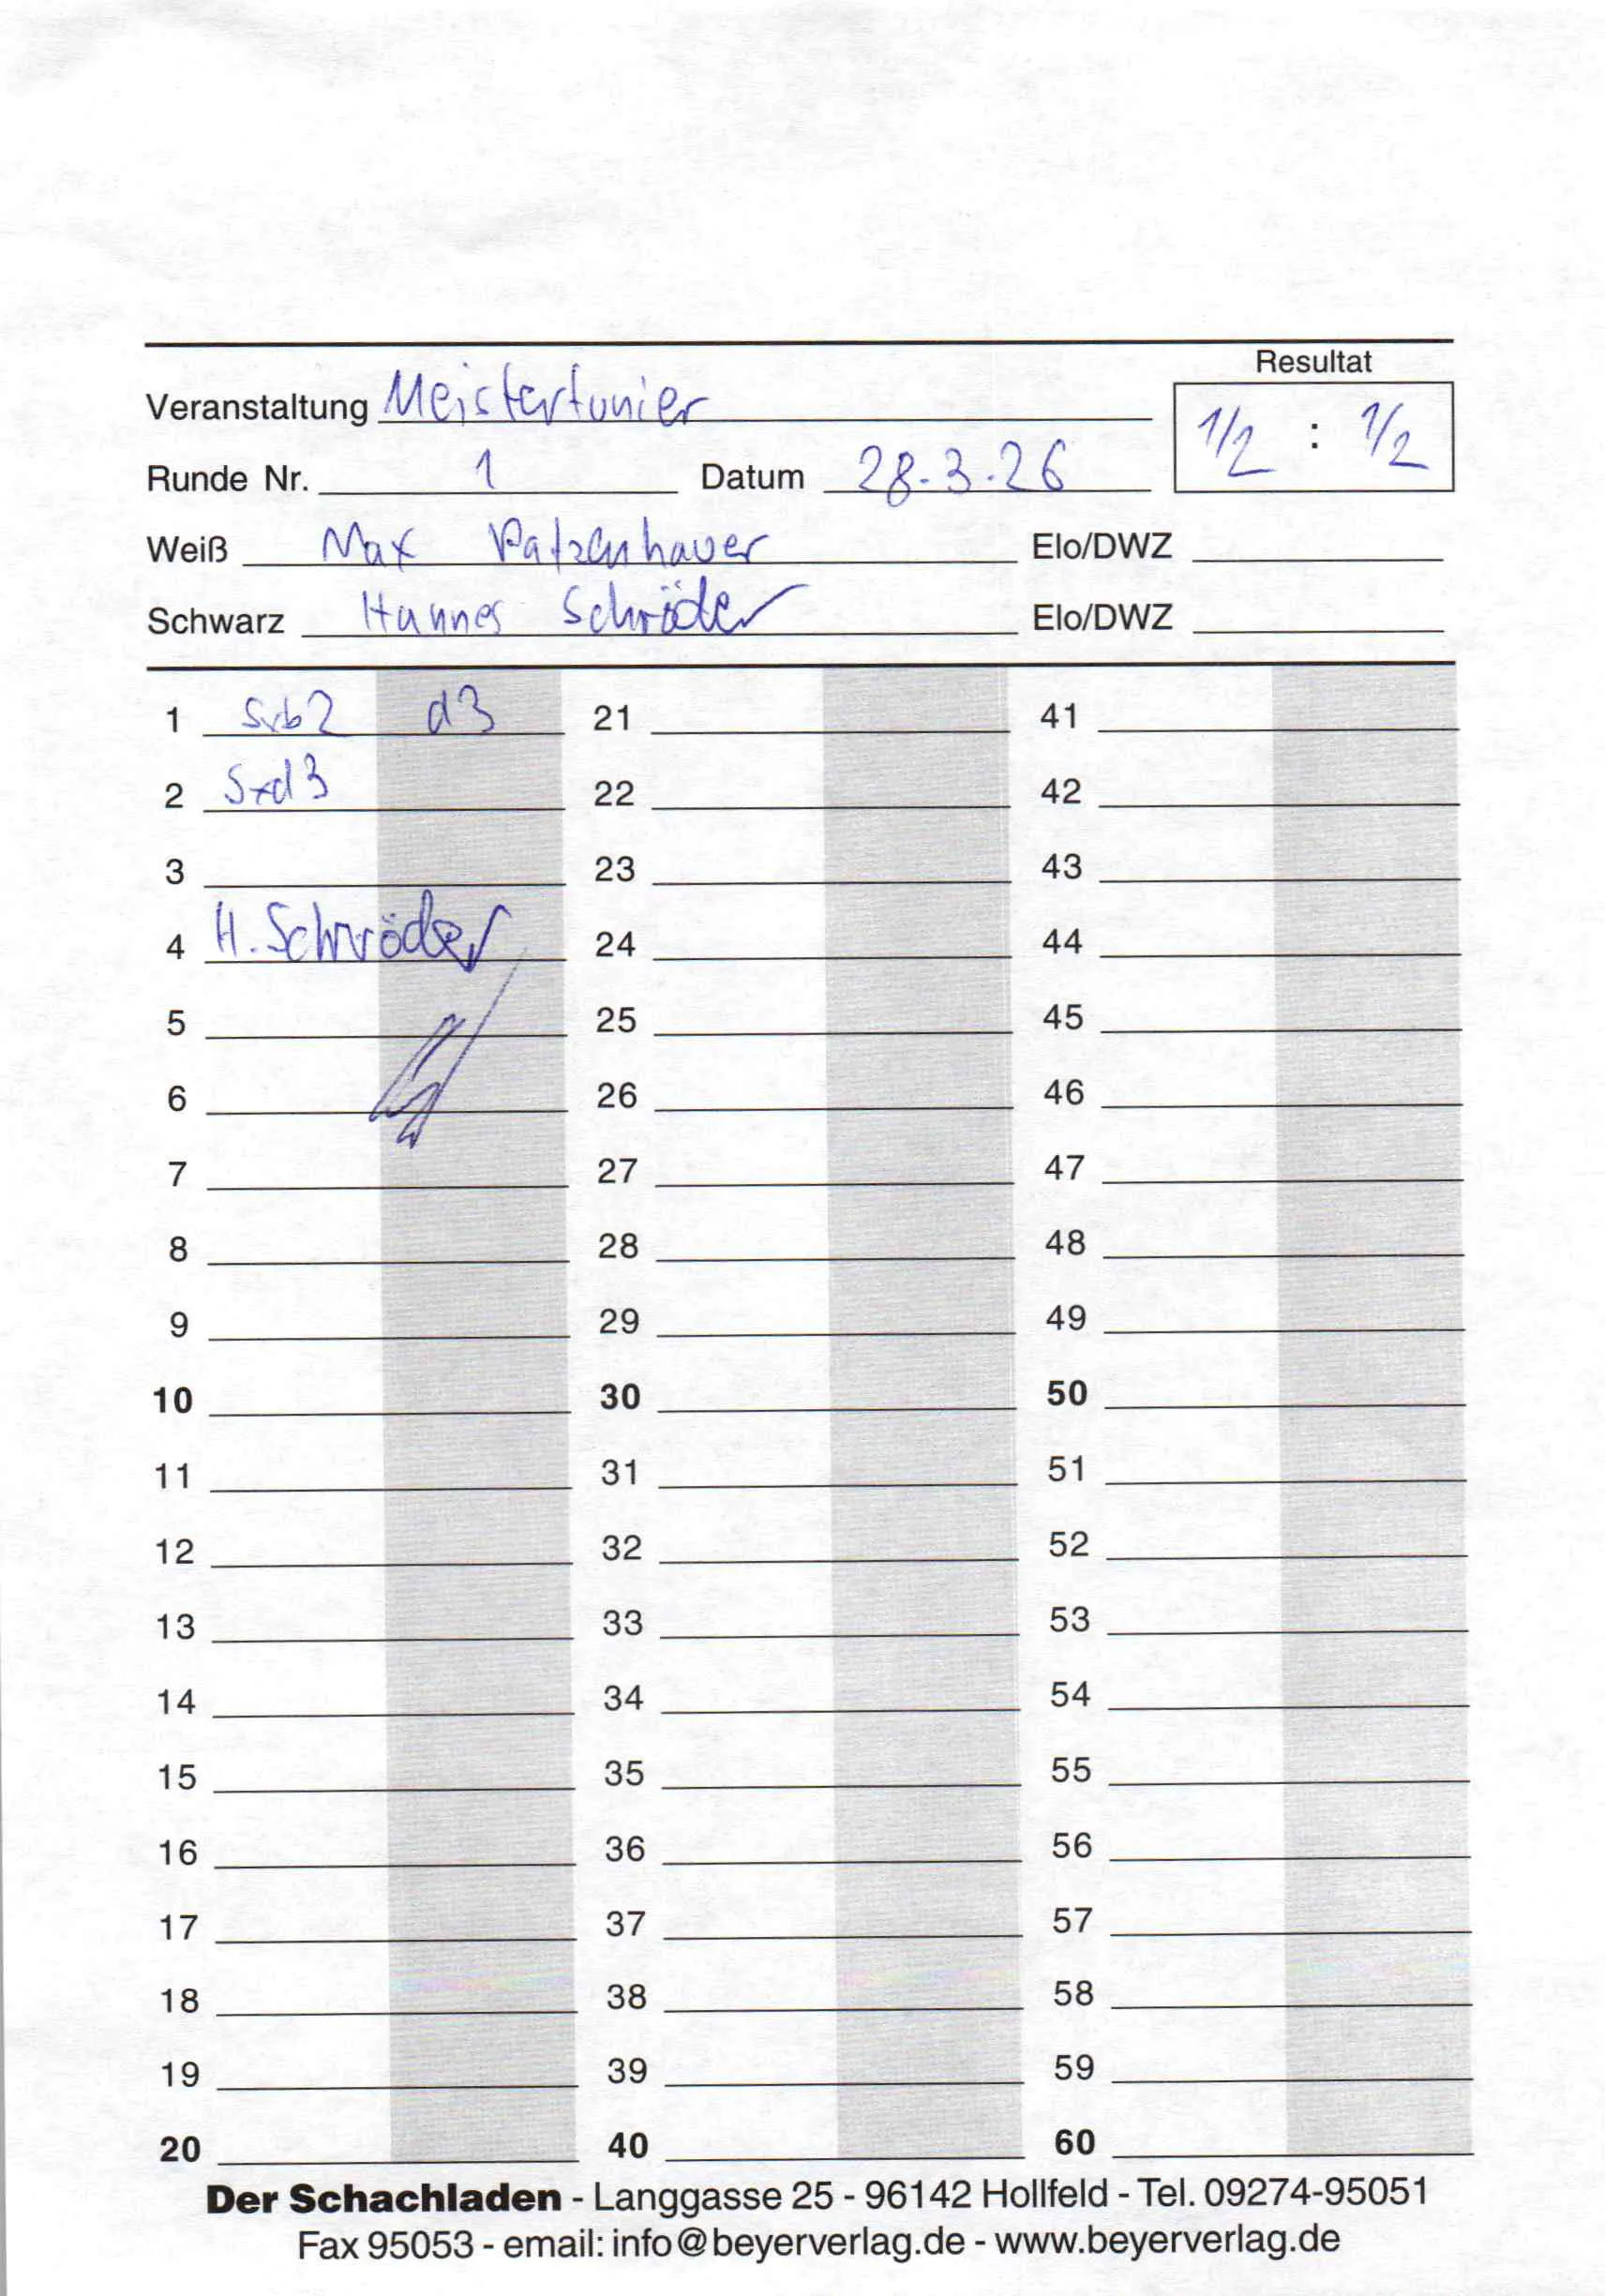 Resultat
Veranstaltung Meistertunier 1/2 : 1/2
Runde Nr. 1 Datum 28.3.26
Weiß Max Patzenhauer Elo/DWZ
Schwarz Hannes Schröder Elo/DWZ
1 Sxb2 d3 21 41
2 Sxd3 22 42
3 23 43
4 H. Schröder 24 44
5 25 45
6 26 46
7 27 47
8 28 48
9 29 49
10 30 50
11 31 51
12 32 52
13 33 53
14 34 54
15 35 55
16 36 56
17 37 57
18 38 58
19 39 59
20 40 60
Der Schachladen - Langgasse 25 - 96142 Hollfeld - Tel. 09274-95051
Fax 95053 - email: info@beyerverlag.de - www.beyerverlag.de